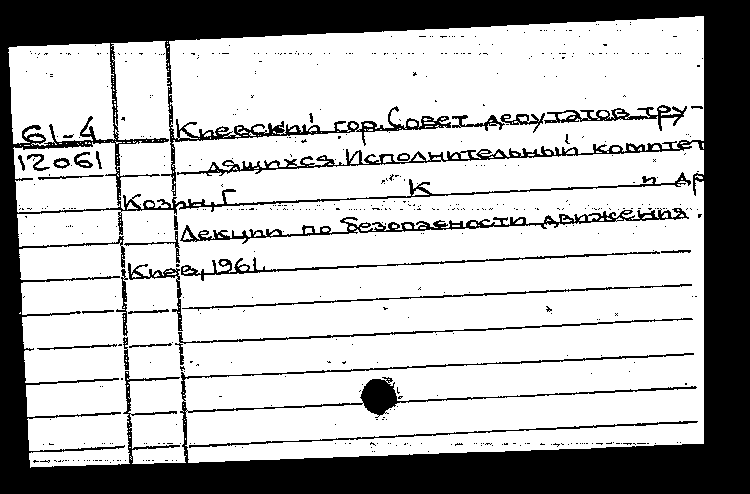 61-4
12061
Киевский гор. Совет депутатов тру-
дящихся. Исполнительный комитет
Козин, Г К и др
Лекции по безопасности движения.
Киев, 1961.